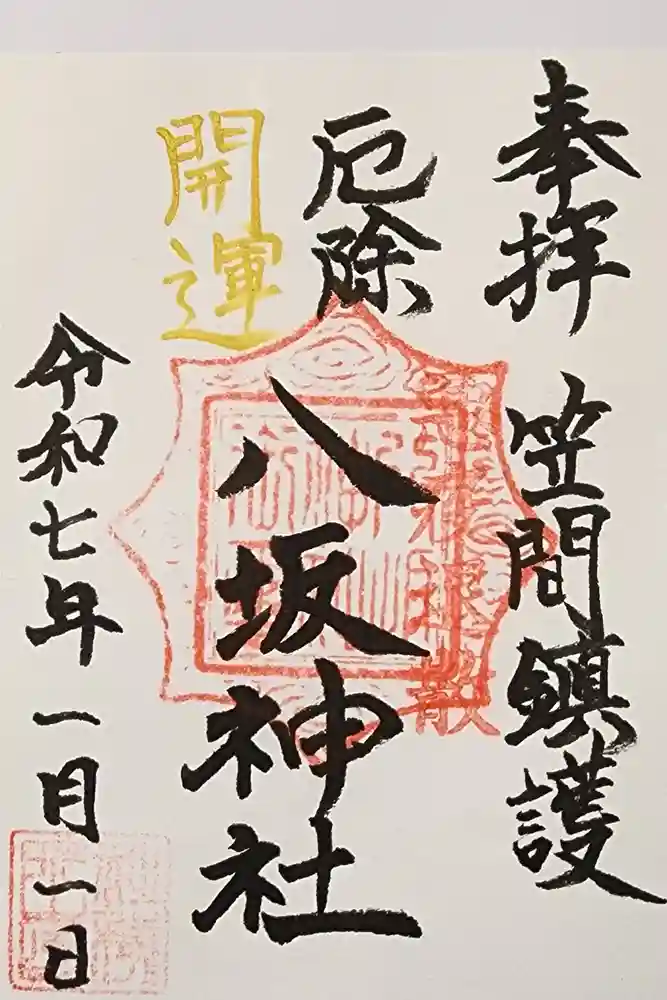 奉拝
笠間鎮護
厄除
八坂神社
開運
令和七年一月一日